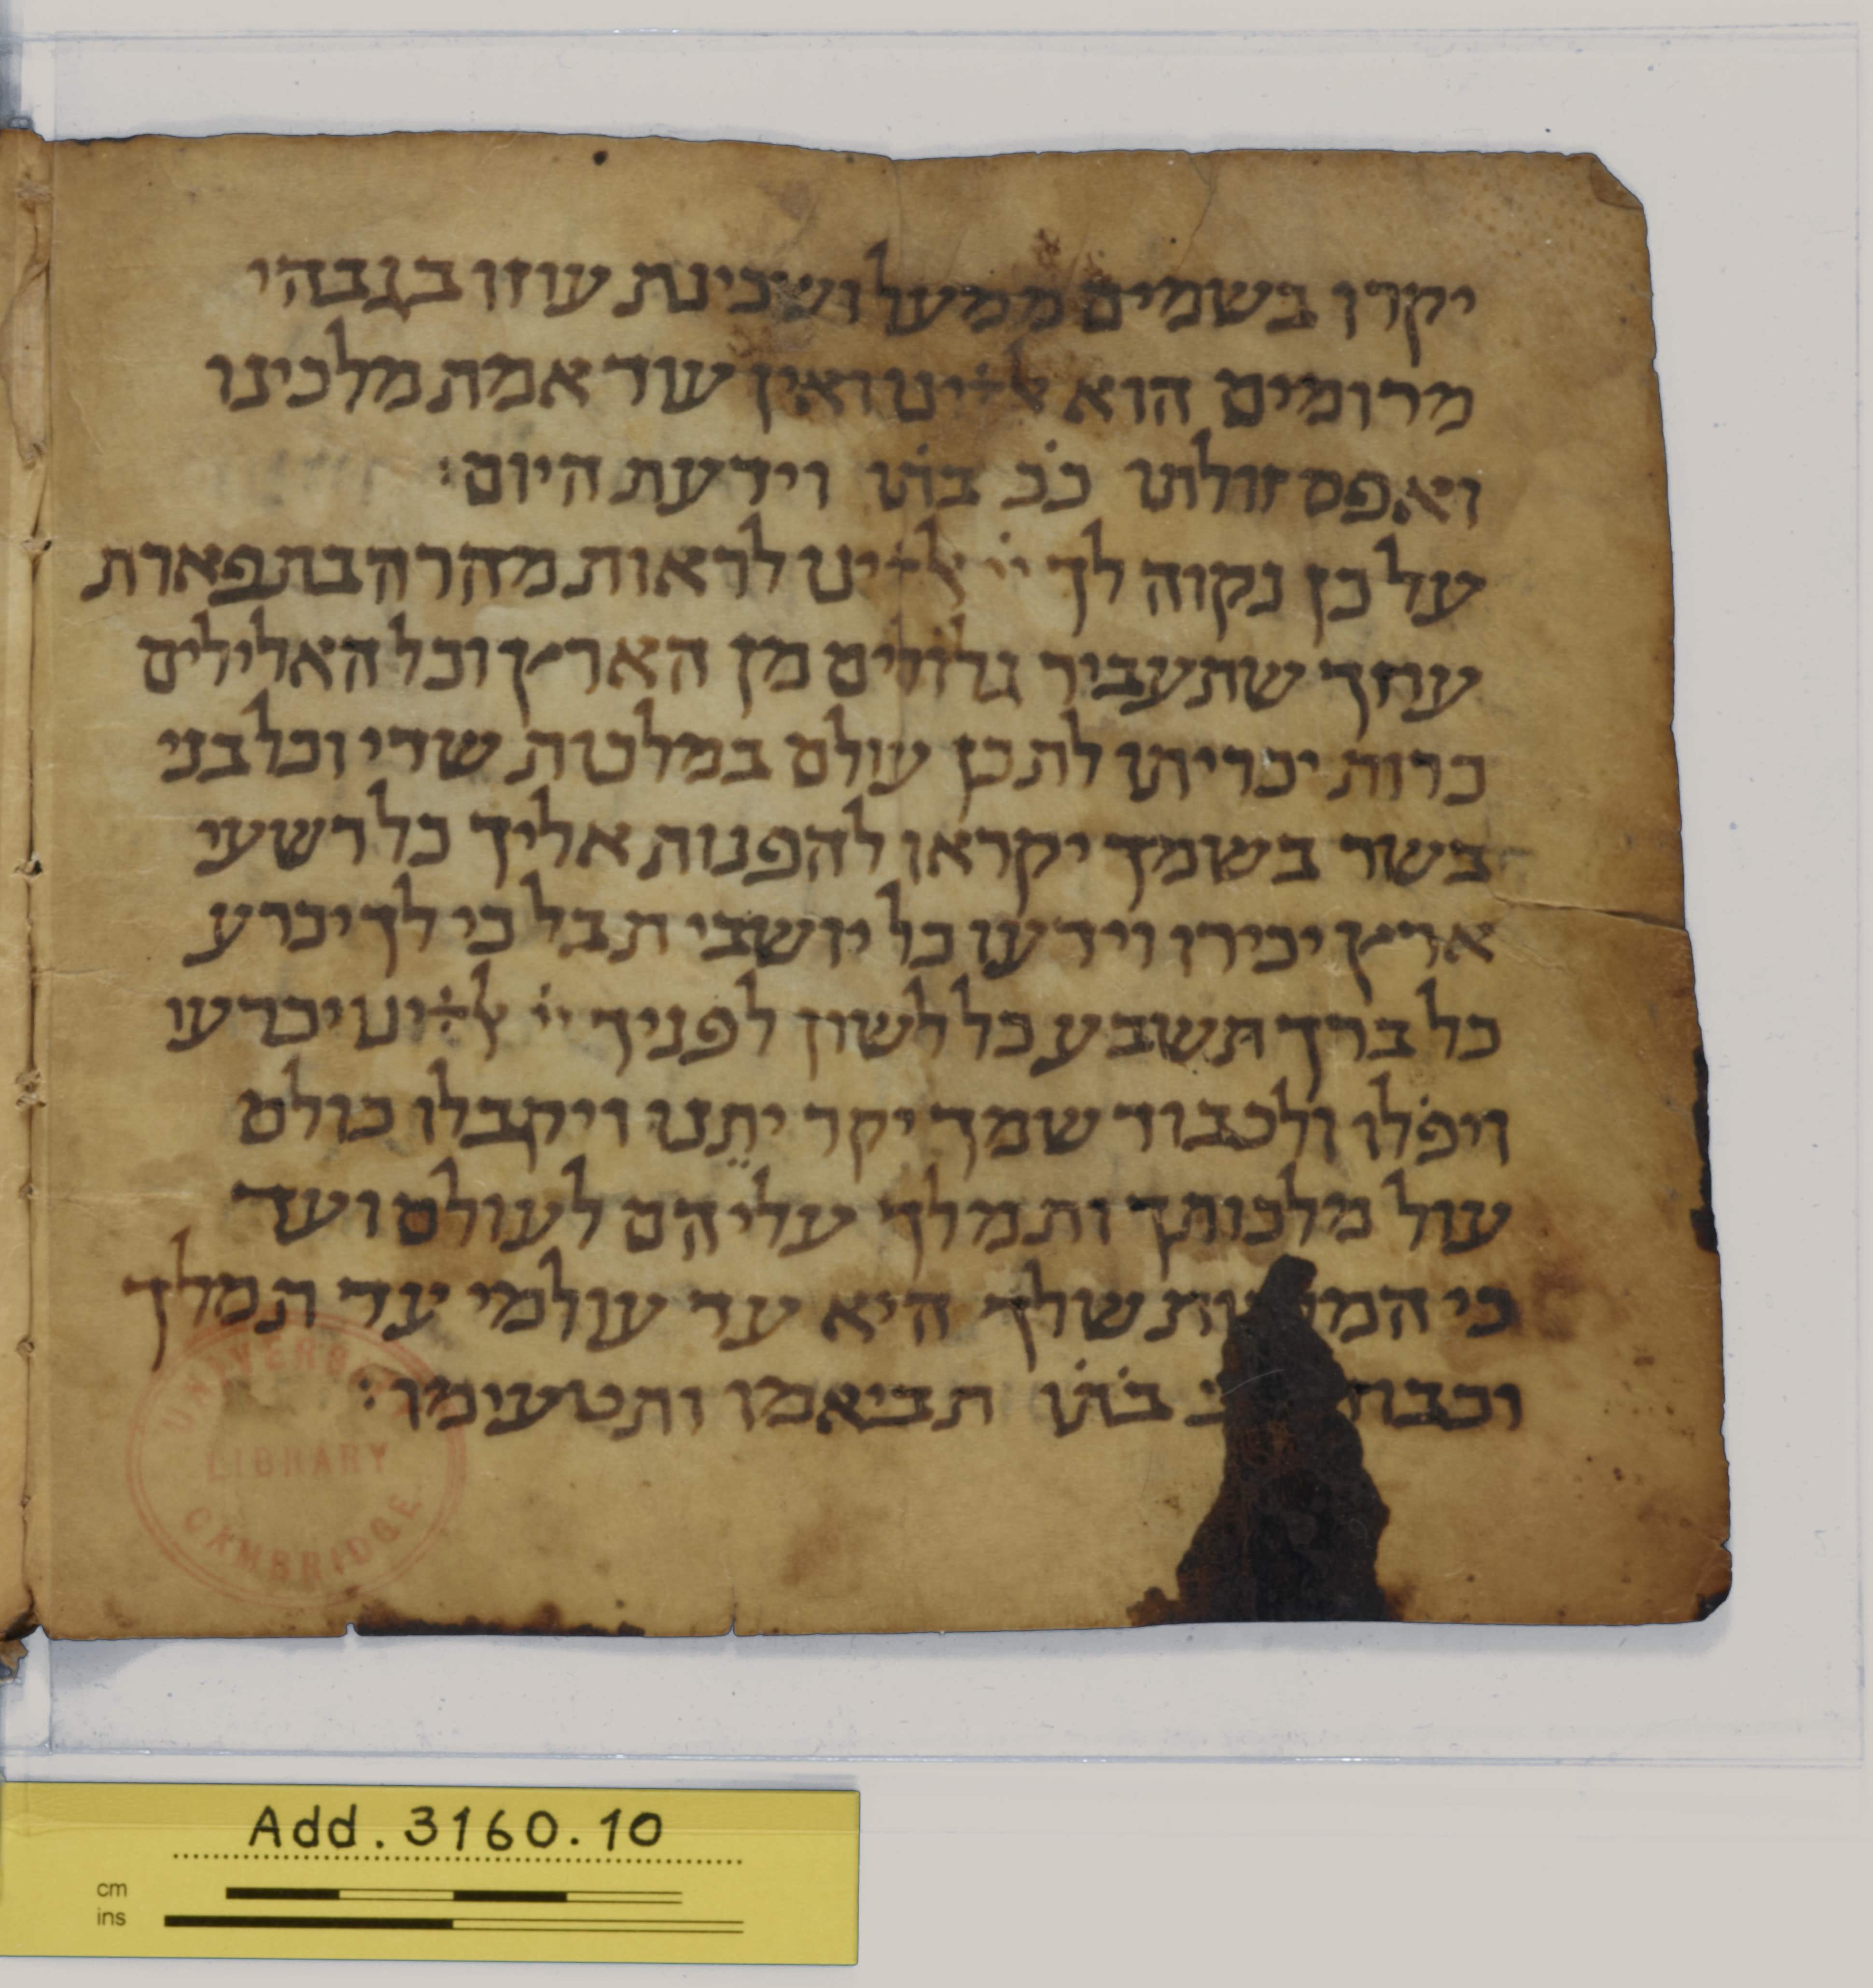 יקרו בשמים ממעל ושכינת עוזו בגבהי
מרומים הוא אלהינו ואין עוד אמת מלכינו
ואפס זולתו ככ בתו וידעת היום:
על כן נקוה לך ייי אלהינו לראות מהרה בתפארת
עוזך שתעביר גלולים מן הארץ וכל האלילים
כרות יכריתו לתכן עולם במלכות שדי וכל בני
בשר בשמך יקראו להפנות אליך כל רשעי
ארץ יכירו וידעו כל יושבי תבל כי לך יכרע
כל ברך תשבע כל לשון לפניך ייי אלהינו יכרעו
ויפלו ולכבוד שמך יקר יתנו ויקבלו כולם
עול מלכותך ותמלך עליהם לעולם ועד
כי שלך היא עד עולמי עד תמלך
בתו תביאמו ותטעימו:
UNIVERSITY
LIBRARY
CAMBRIDGE
Add. 3160.10
cm
ins